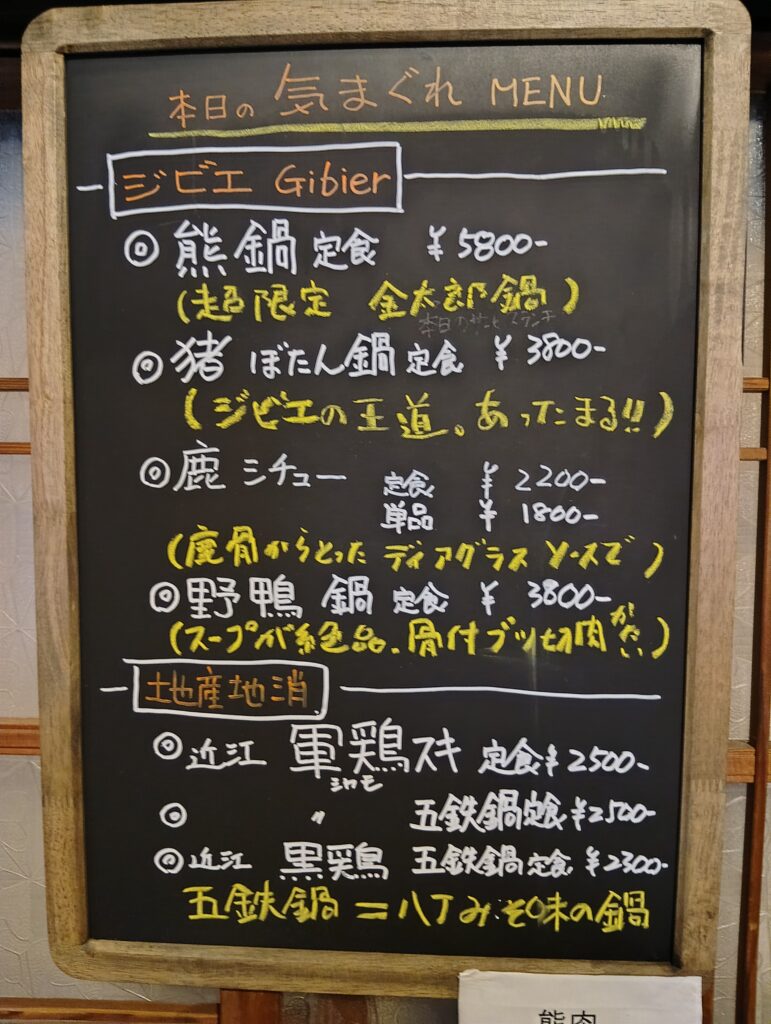 本日の 気まぐれ MENU
ジビエ Gibier
◎ 熊鍋 定食 ¥5800-
(超限定 金太郎鍋)
◎ 猪 ぼたん鍋 定食 ¥3800-
(ジビエの王道。あったまる!!)
◎ 鹿 シチュー 定食 ¥2200-
単品 ¥1800-
(鹿骨からとった ディアグラスソースで)
◎ 野鴨 鍋 定食 ¥3800-
(スープが絶品、骨付ブツ切肉がたい)
地産地消
◎ 近江 軍鶏スキ 定食 ¥2500-
シャモ
◎ 〃 五鉄鍋定食 ¥2500-
◎ 近江 黒鶏 五鉄鍋定食 ¥2300-
五鉄鍋=八丁みそ味の鍋
熊肉